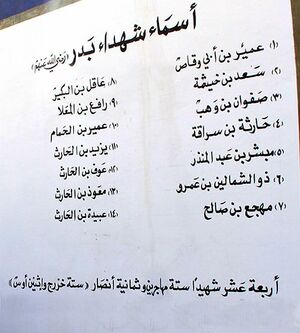 أسماء شهداء بدر (رضي الله عنهم)
(١) عمير بن أبي وقاص
(٢) سعد بن خيثمة
(٣) صفوان بن وهب
(٤) حارثة بن سراقة
(٥) مبشر بن عبد المنذر
(٦) ذو الشمالين بن عمرو
(٧) مهجع بن صالح
(٨) عاقل بن البكير
(٩) رافع بن المعلا
(١٠) عمير بن الحمام
(١١) يزيد بن الحارث
(١٢) عوف بن الحارث
(١٣) معوذ بن الحارث
(١٤) عبيدة بن الحارث
أربعة عشر شهيدا ستة مهاجرين وثمانية أنصار (ستة خزرج واثنين أوس)